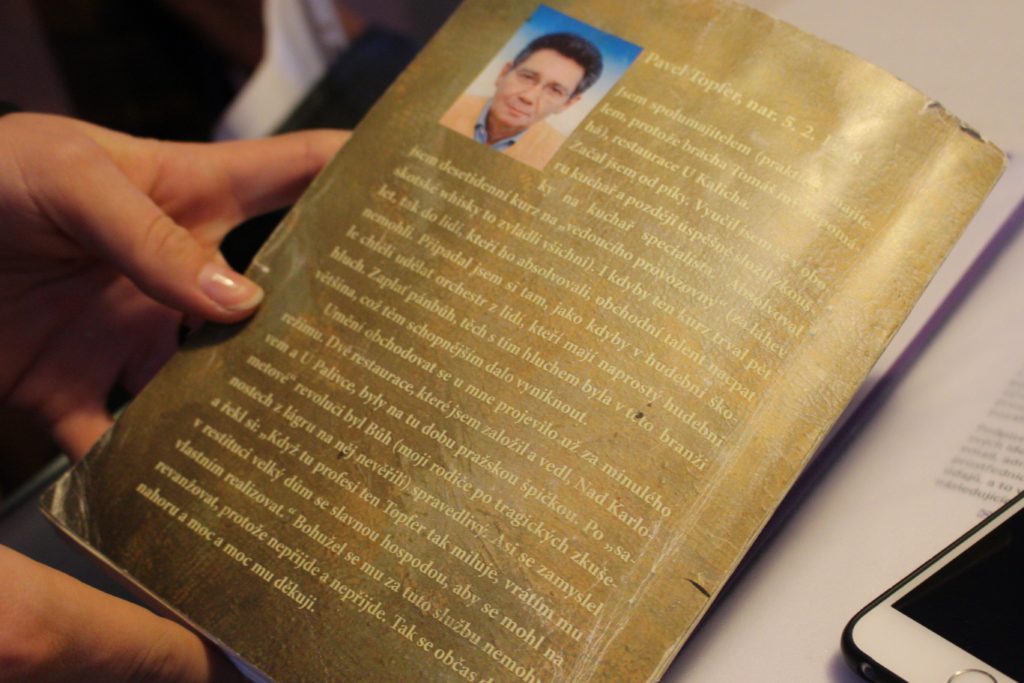 Pavel Topfer, nar. 5. 2.
Jsem spolumajitelem
lem, protože brácha Tomáš
há), restaurace U Kalicha.
Začal jsem od píky. Vyučil jsem
ru kuchař a později úspěšně složil
ky na „kuchař specialista“.
Jsem desetidenní kurz na „vedoucího provozovny“ (za láhev
skotské whisky to zvládli všichni). I kdyby ten kurz trval pět
let, tak do lidí, kteří ho absolvovali, obchodní talent nacpat
nemohli. Připadal jsem si tam, jako kdyby v hudební ško-
le chtěli udělat orchestr z lidí, kteří mají naprostý hudební
hluch. Zaplať pánbůh, těch s tím hluchem byla v této branži
většina, což těm schopnějším dalo vyniknout.
Umění obchodovat se u mne projevilo už za minulého
režimu. Dvě restaurace, které jsem založil a vedl, Nad Karlo-
vem a U Palivce, byly na tu dobu pražskou špičkou. Po „sa-
metové“ revoluci byl Bůh (moji rodiče po tragických zkuše-
nostech z lágru na něj nevěřili) spravedlivý. Asi se zamyslel
a řekl si: „Když tu profesi ten Topfer tak miluje, vrátím mu
v restituci velký dům se slavnou hospodou, aby se mohl na
vlastním realizovat.“ Bohužel se mu za tuto službu nemohu
revanžovat, protože nepřijde a nepřijde. Tak se občas
nahoru a moc a moc mu děkuji.